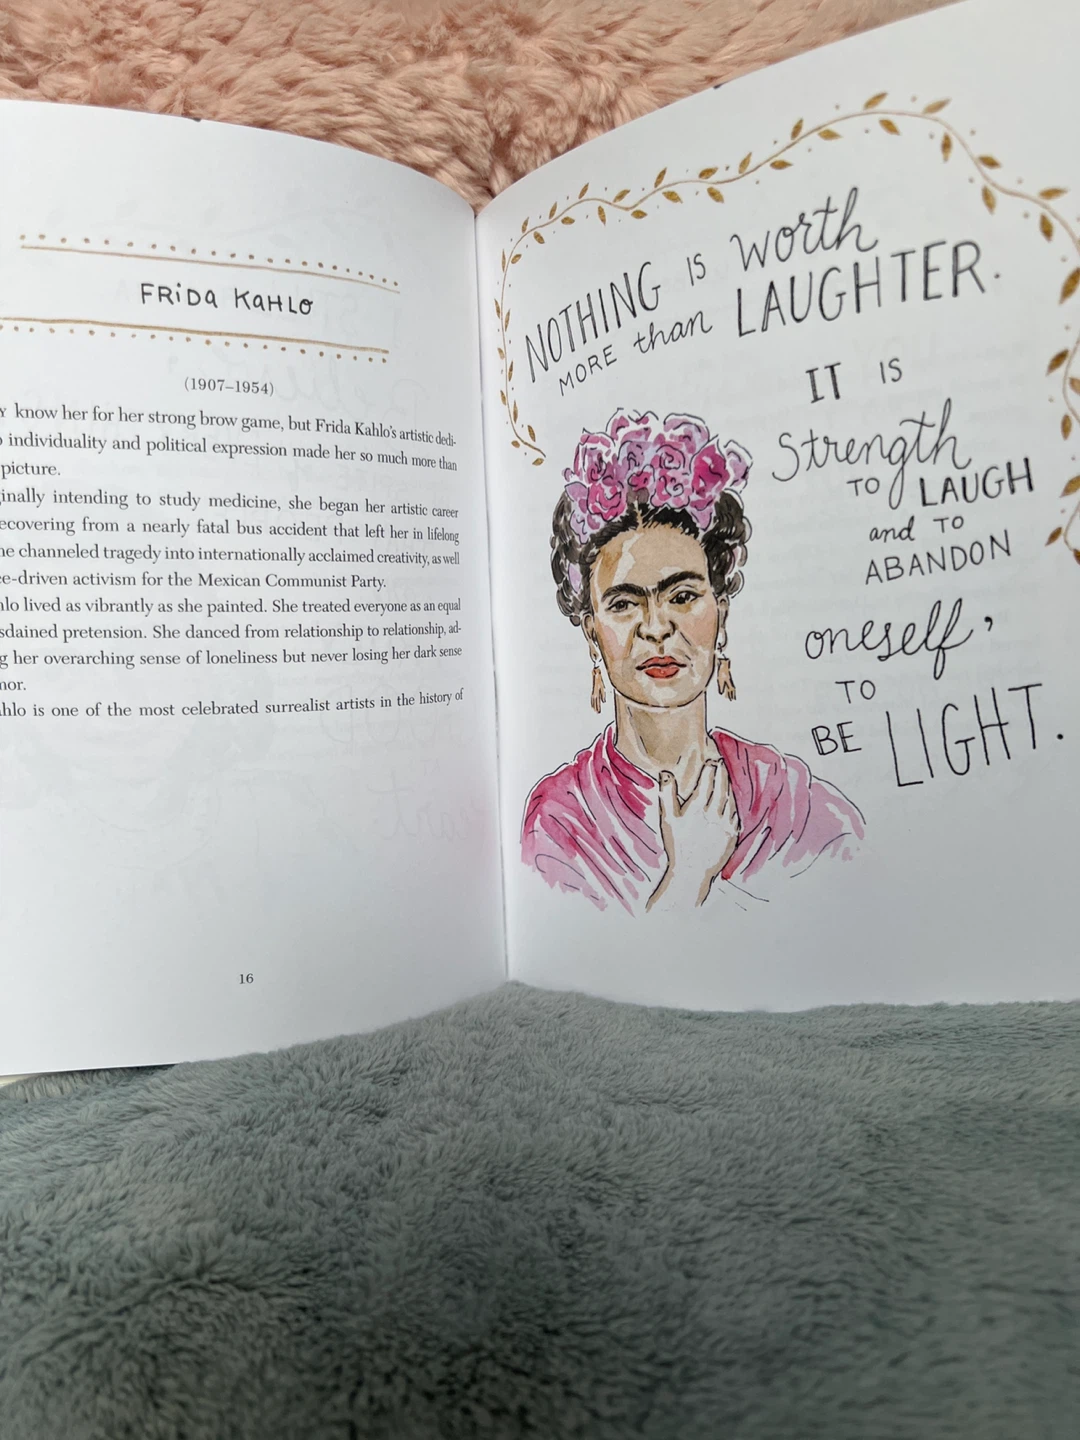 FRiDa KaHLO
(1907–1954)
know her for her strong brow game, but Frida Kahlo's artistic dedi-
individuality and political expression made her so much more than
picture.
ginally intending to study medicine, she began her artistic career
ecovering from a nearly fatal bus accident that left her in lifelong
he channeled tragedy into internationally acclaimed creativity, as well
e-driven activism for the Mexican Communist Party.
hlo lived as vibrantly as she painted. She treated everyone as an equal
sdained pretension. She danced from relationship to relationship, ad-
g her overarching sense of loneliness but never losing her dark sense
mor.
ahlo is one of the most celebrated surrealist artists in the history of
16
NOTHING IS worth
MORE than LAUGHTER.
IT IS
Strength
TO LAUGH
and TO
ABANDON
oneself,
TO
BE LIGHT.